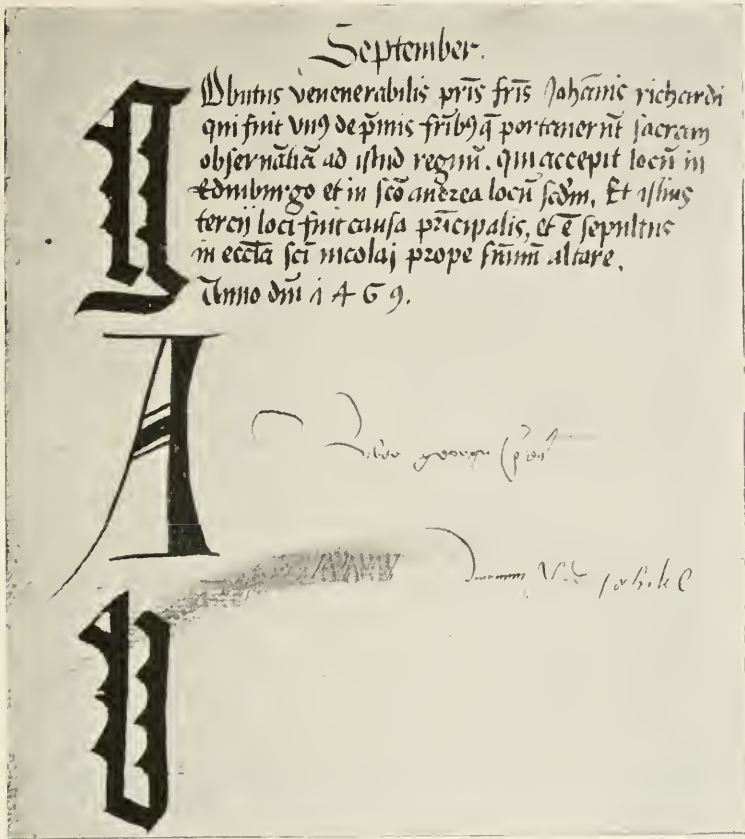 September.
g Obitus venenerabilis pr̄is fr̄is Joha̅nis richardi
qui fuit vnꝰ de p̄mis fr̄ibꝰ q̄ portaueru̅t sacram
obserua̅tia̅ ad istud regnu̅. qui accepit locu̅ in
Edinburgo et in sc̅o andrea locu̅ sc̅dm. Et istius
tercij loci fuit causa pr̅incipalis, et e̅ sepultus
in eccl̅a sc̅i nicolaj prope su̅mu̅ altare.
Anno dn̅i 1469.
A
b